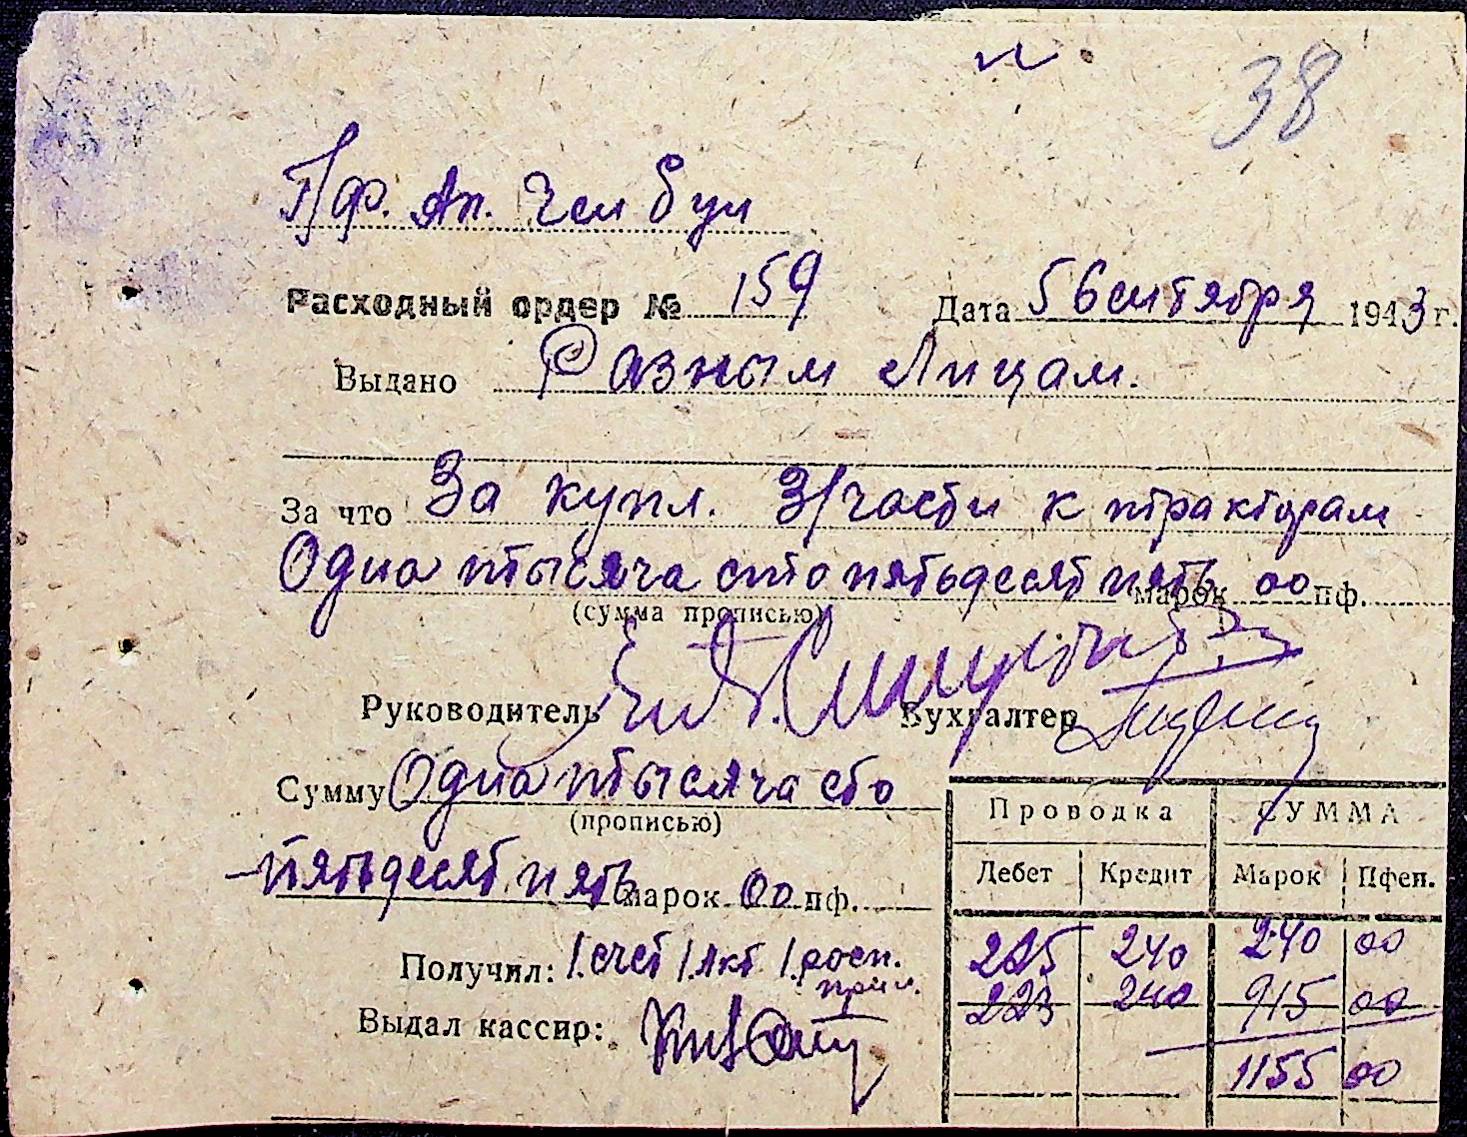 38
Расходный ордер № 159 Дата 5 Сентября 1943 г.
Выдано Разным Лицам.
За что За купл. З/части к тракторам
Одна тысяча сто пятьдесят пять марок 00 пф.
(сумма прописью)
Руководитель Бухгалтер
Сумму Одна тысяча сто
(прописью)
пятьдесят пять марок 00 пф.
Проводка СУММА
Дебет Кредит Марок Пфен.
Получил: 1. счет 1. Акт 1. росп.
прил.
225 240 240 00
Выдал кассир:
223 240 915 00
1155 00